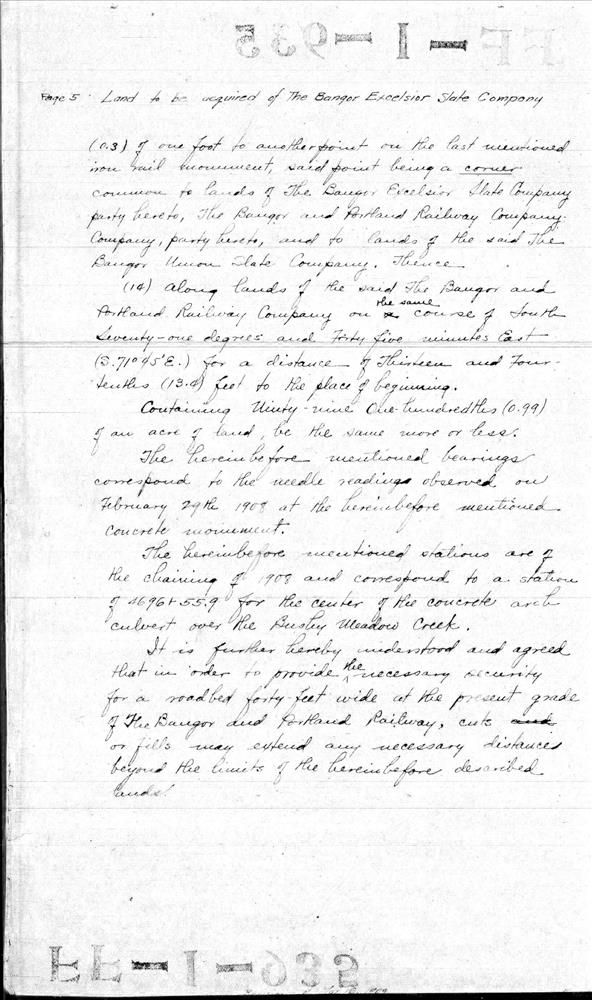 FF-1-935
Page 5 Land to be acquired of The Bangor Excelsior Slate Company
(0.3) of one foot to another point on the last mentioned
iron rail monument, said point being a corner
common to lands of The Bangor Excelsior Slate Company
party hereto, The Bangor and Portland Railway Company
Company, party hereto, and to lands of the said The
Bangor Union Slate Company. Thence
(14) Along lands of the said The Bangor and
Portland Railway Company on the same course of South
Seventy-one degrees and Forty five minutes East
(S. 71° 45' E.) for a distance of Thirteen and Four-
tenths (13.4) feet to the place of beginning.
Containing Ninety-nine One-hundredths (0.99)
of an acre of land, be the same more or less.
The hereinbefore mentioned bearings
correspond to the needle readings observed on
February 29th 1908 at the hereinbefore mentioned
concrete monument.
The hereinbefore mentioned stations are of
the chaining of 1908 and correspond to a station
of 4696+55.9 for the center of the concrete arch
culvert over the Bushy Meadow Creek.
It is further hereby understood and agreed
that in order to provide the necessary security
for a roadbed forty-feet wide at the present grade
of The Bangor and Portland Railway, cuts and
or fills may extend any necessary distances
beyond the limits of the hereinbefore described
lands.
FF-1-935